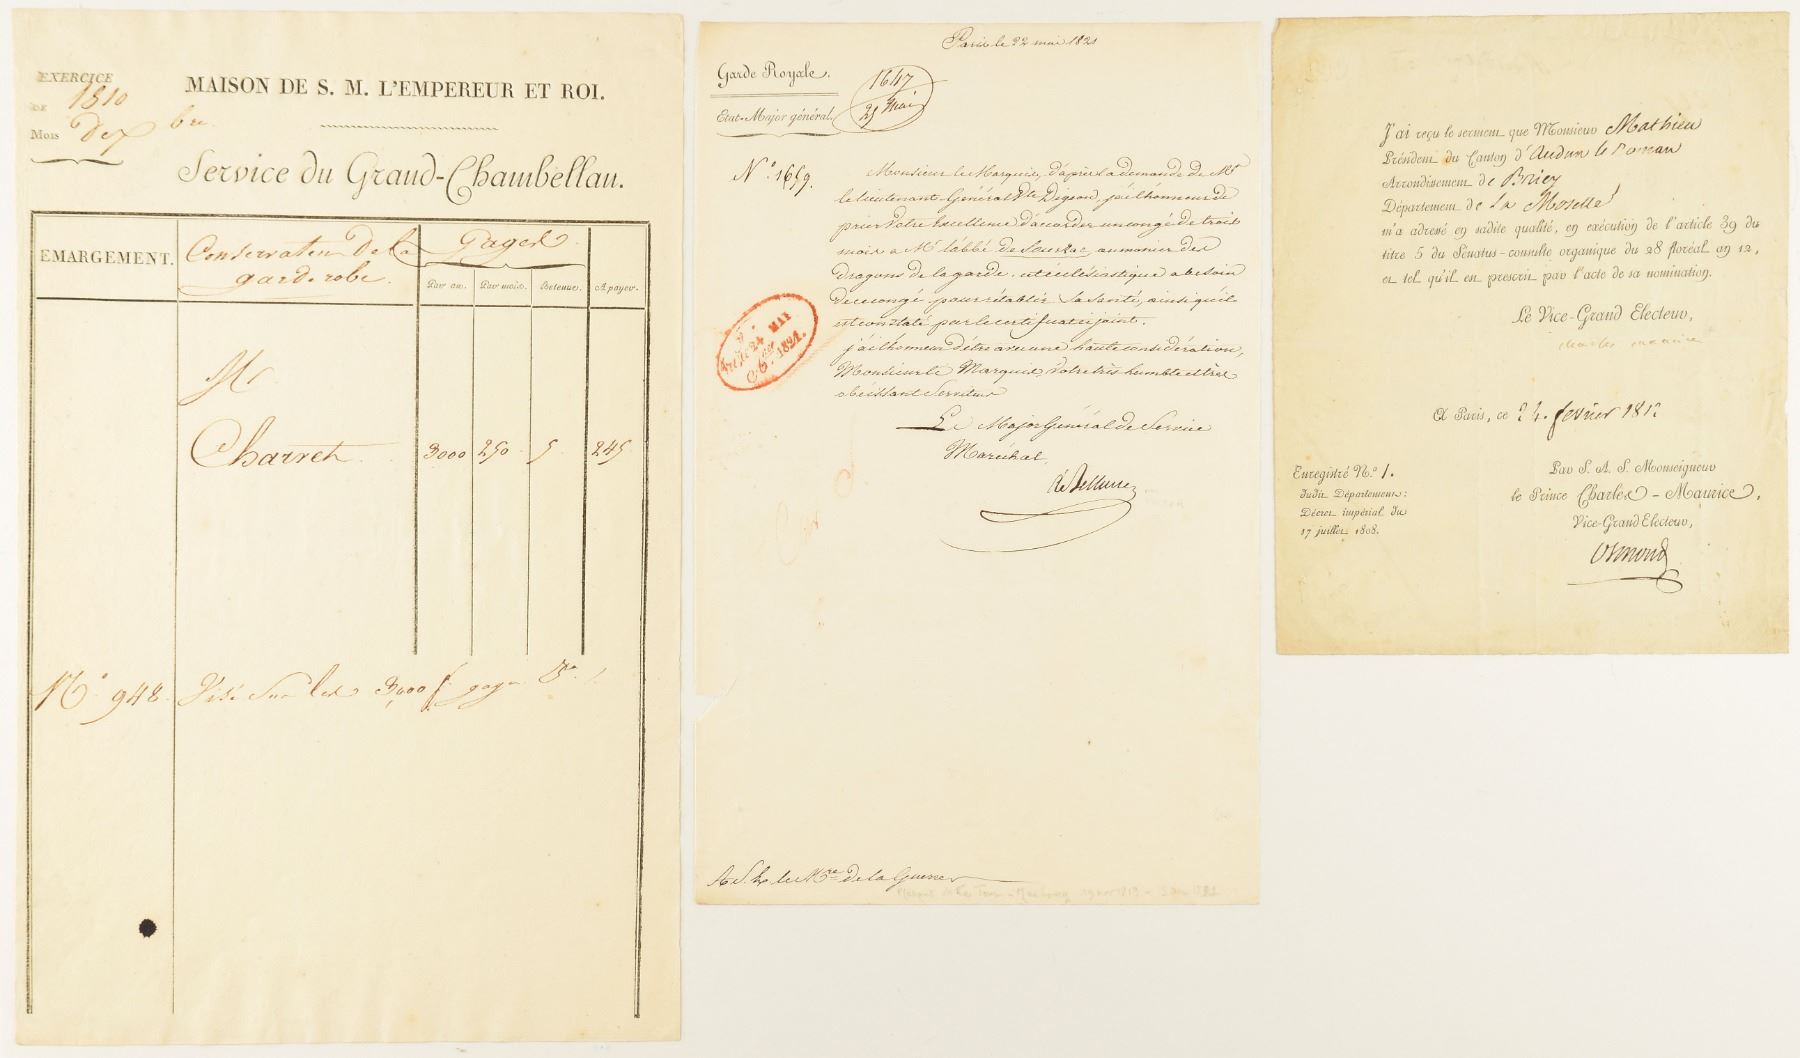 EXERCICE
DE 1810
Mois Dexbre
MAISON DE S. M. L'EMPEREUR ET ROI.
Service du Grand-Chambellan.
EMARGEMENT.
Conservateur De la
garderobe.
Gages
Par an. Par mois. Retenue. A payer.
Mr
Charvet 3000 250 5 245
N.° 948. Visé Sur les 3000 f. gages
Paris le 22 mai 1821
Garde Royale.
Etat-Major général.
1647
25 Mai
N.° 1659.
Monsieur le Marquis, d'après la demande de Mr
le lieutenant-Général Vte Digeon, j'ai l'honneur de
prier Votre Excellence d'accorder un congé de trois
mois a Mr l'abbé de aumonier des
Dragons de la garde. cet écclésiastique a besoin
de ce congé pour rétablir sa santé, ainsi qu'il
est constaté par le certificat ci joint.
j'ai l'honneur d'être avec une haute considération,
Monsieur le Marquis, votre très humble et très
obéissant Serviteur
Le Major Général de Service
Maréchal
24 MAI
1821.
A S. Ex. le Mtre de la Guerre
J'ai reçu le serment que Monsieur Mathieu
Président du Canton d'Audun le Roman
Arrondissement de Briey
Département de La Moselle
m'a adressé en sadite qualité, en exécution de l'article 39 du
titre 5 du Sénatus-consulte organique du 28 floréal an 12,
et tel qu'il est prescrit par l'acte de sa nomination.
Le Vice-Grand Electeur,
charles maurice
A Paris, ce 24. fevrier 1812
Enregistré N.° 1.
dudit Département:
Décret impérial du
17 juillet 1808.
Par S. A. S. Monseigneur
le Prince Charles-Maurice,
Vice-Grand Electeur,
Osmond